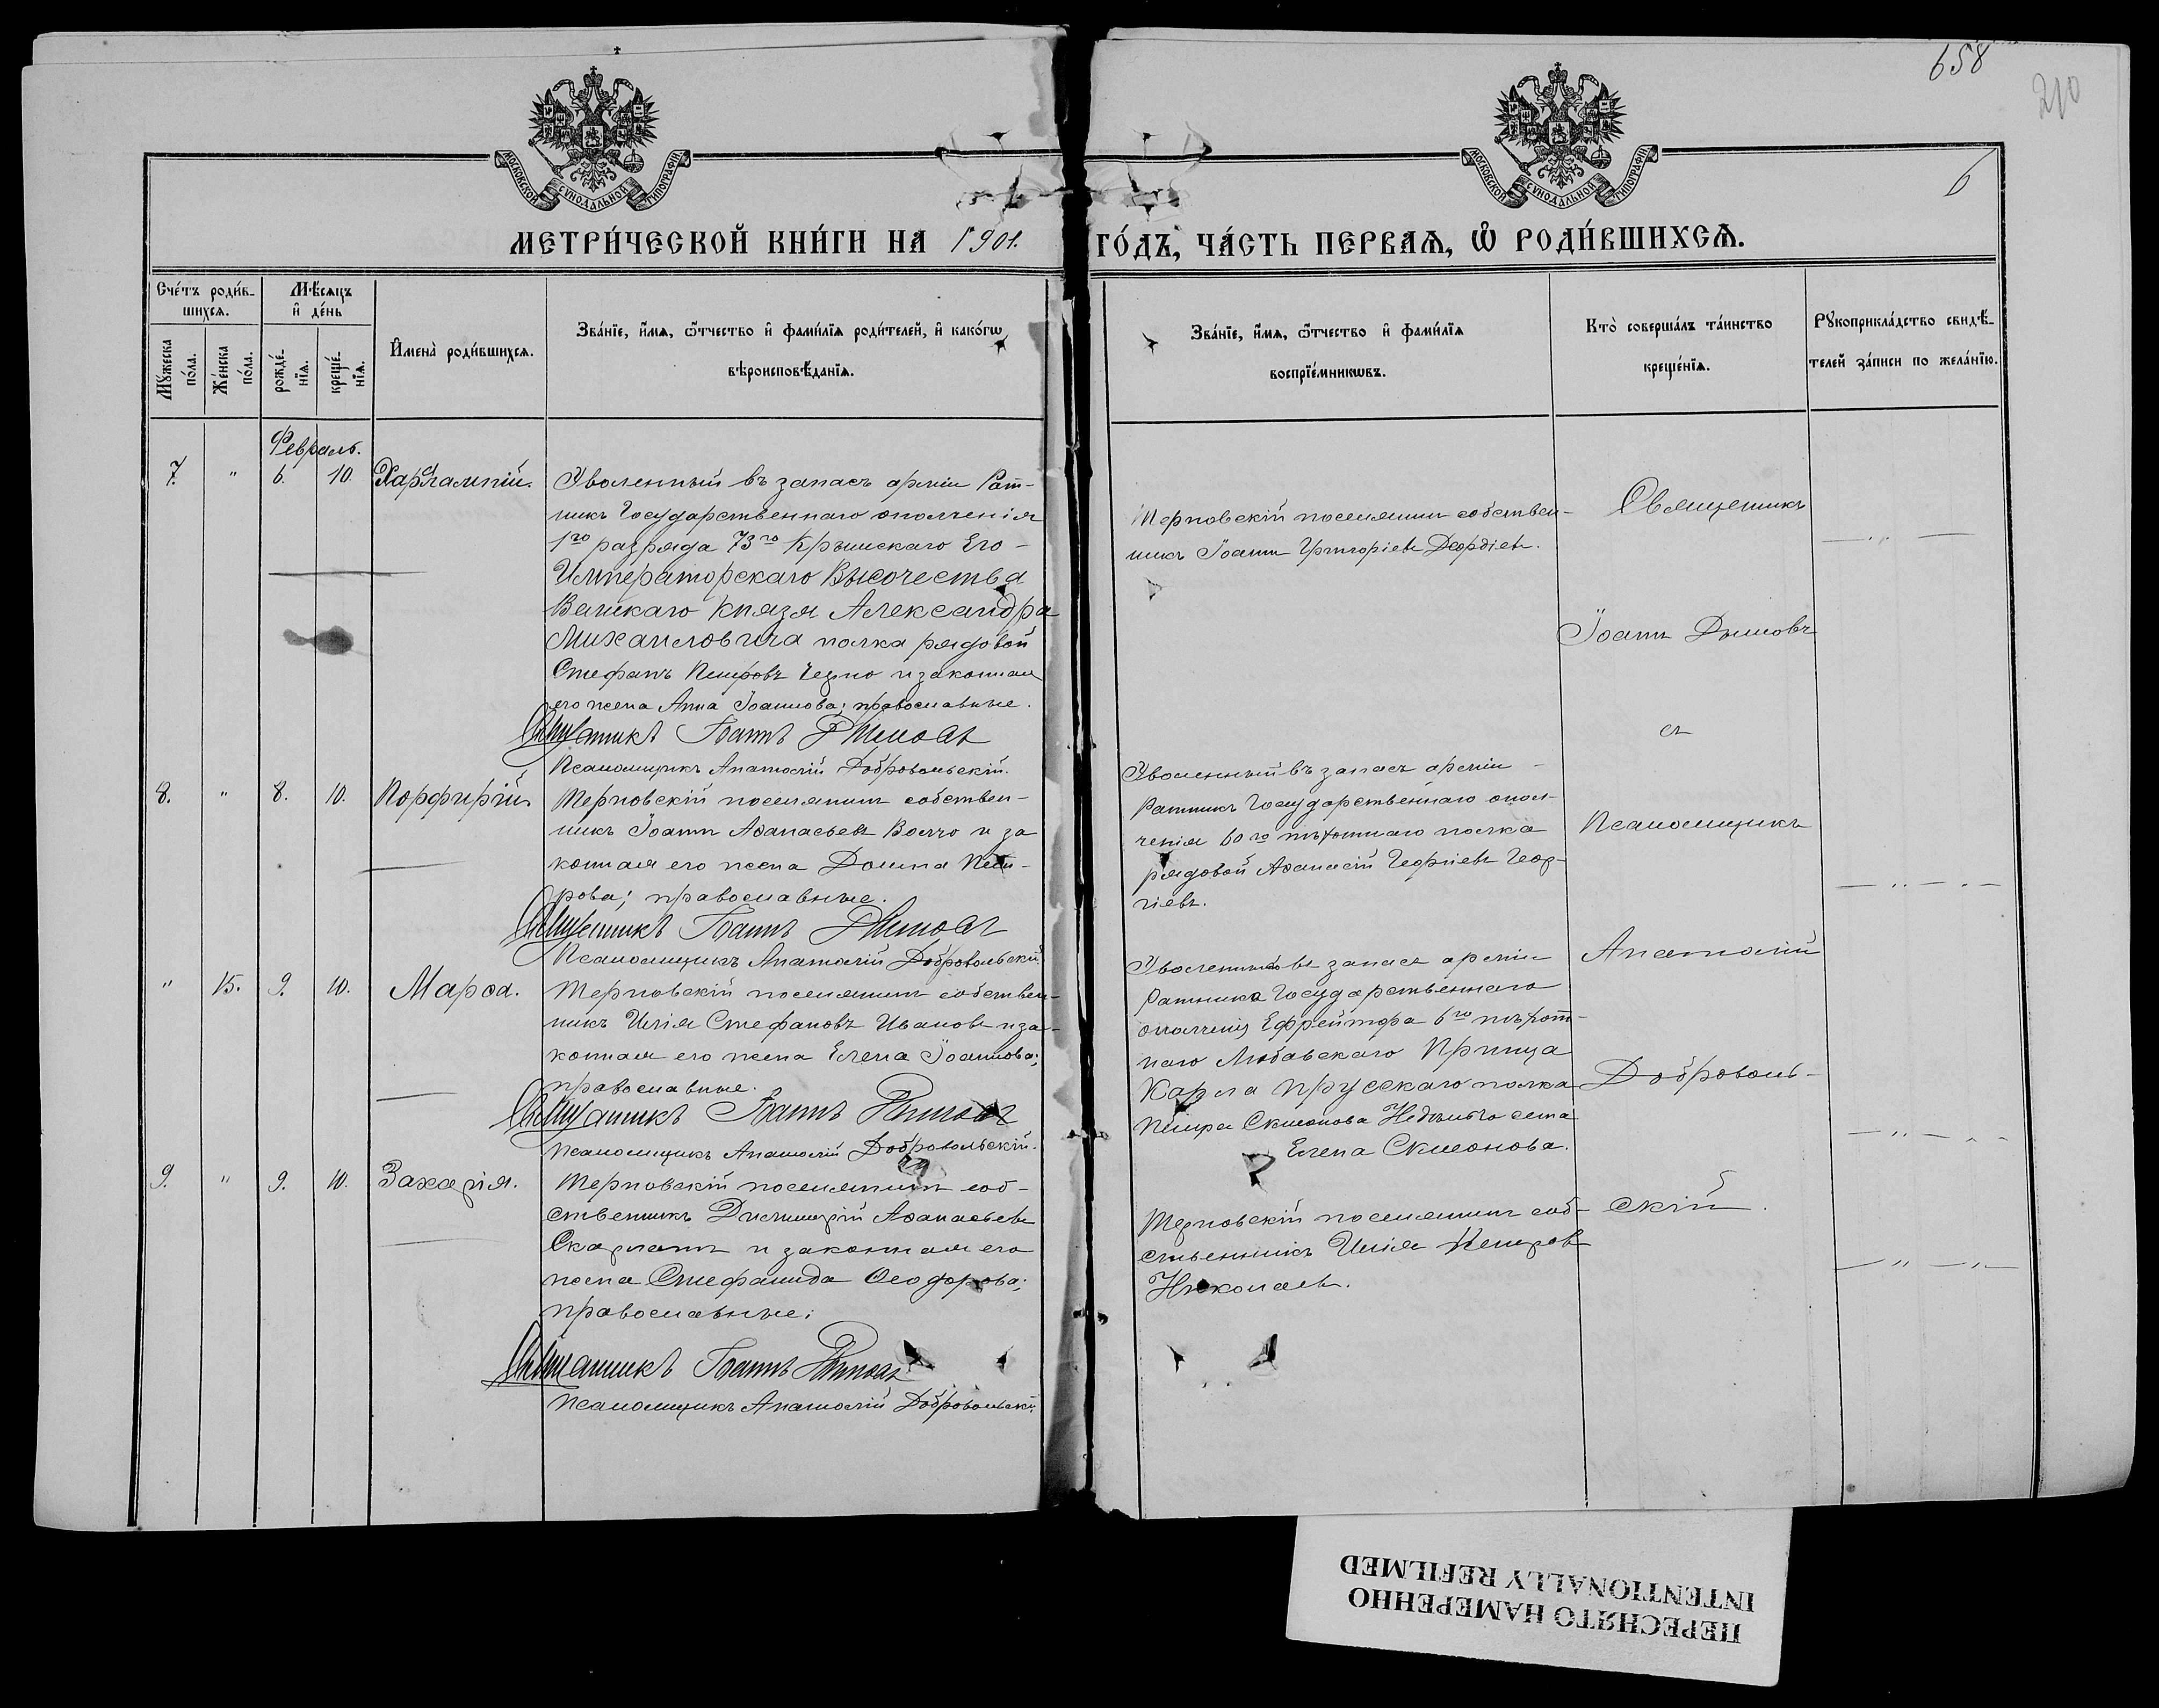 658
210
6
МОСКОВСКОЙ СѴНОДАЛЬНОЙ ТИПОГРАФІИ
МОСКОВСКОЙ СѴНОДАЛЬНОЙ ТИПОГРАФІИ
МЕТРИ́ЧЕСКОЙ КНИ́ГИ НА 1901. ГО́ДЪ, ЧА́СТЬ ПЕРВАЯ, Ѡ҆ РОДИ́ВШИХСЯ.
Сче́тъ роди́в-
шихся.
Мѣ́сяцъ
и҆ де́нь
Му́жеска
по́ла.
Же́нска
по́ла.
рожде́-
нїя.
креще́-
нїя.
И҆мена̀ роди́вшихся.
Зва́нїе, и҆́мя, ѻ҆́тчество и҆ фами́лїя роди́телей, и҆ како́гѡ
вѣроисповѣ́данїя.
Зва́нїе, и҆́мя, ѻ҆́тчество и҆ фами́лїя
воспрїе́мникѡвъ.
Кто̀ соверша́лъ та́инство
креще́нїя.
Рꙋкоприкла́дство свидѣ́-
телей за́писи по жела́нїю.
Февраль.
7. " 6. 10. Харлампій.
Уволенный въ запасъ арміи Рат-
никъ Государственнаго ополченія
1го разряда 73го Крымскаго Его
Императорскаго Высочества
Великаго Князя Александра
Михаиловича полка рядовой
Стефанъ Петровъ и законная
его жена Анна Іоаннова; православные.
Священникъ Іоаннъ Дымовъ
Псаломщикъ Анатолій Добровольскій.
Терновскій поселянинъ собствен-
никъ Іоаннъ Григоріевъ
8. " 8. 10. Порфирій.
Терновскій поселянинъ собствен-
никъ Іоаннъ Аѳанасьевъ Волчо и за
конная его жена Домна Пет-
рова; православные.
Священникъ Іоаннъ Дымовъ
Псаломщикъ Анатолій Добровольскій.
Уволенный въ запасъ арміи
Ратникъ Государственнаго опол-
ченія 60го пѣхотнаго полка
рядовой Аѳанасій Георгіевъ Геор-
гіевъ.
" 15. 9. 10. Марѳа.
Терновскій поселянинъ собствен-
никъ Илія Стефановъ Ивановъ и за-
конная его жена Елена Іоаннова;
православные.
Священникъ Іоаннъ Дымовъ
Псаломщикъ Анатолій Добровольскій.
въ запасъ арміи
Ратника Государственнаго
ополченія Ефрейтора 6го пѣхот-
наго Либавскаго Принца
Карла Прусскаго полка
Петра жена
Елена
9. " 9. 10. Захарія.
Терновскій поселянинъ соб-
ственникъ Димитрій Аѳанасьевъ
Скарлатъ и законная его
жена Стефанида Ѳеодорова;
православные.
Священникъ Іоаннъ Дымовъ
Псаломщикъ Анатолій Добровольскій.
Терновскій поселянинъ соб-
ственникъ Илія Петровъ
Николаевъ.
Священникъ
Іоаннъ Дымовъ
съ
Псаломщикъ
Анатолій
Доброволь-
скій.
ПЕРЕСНЯТО НАМЕРЕННО
INTENTIONALLY REFILMED